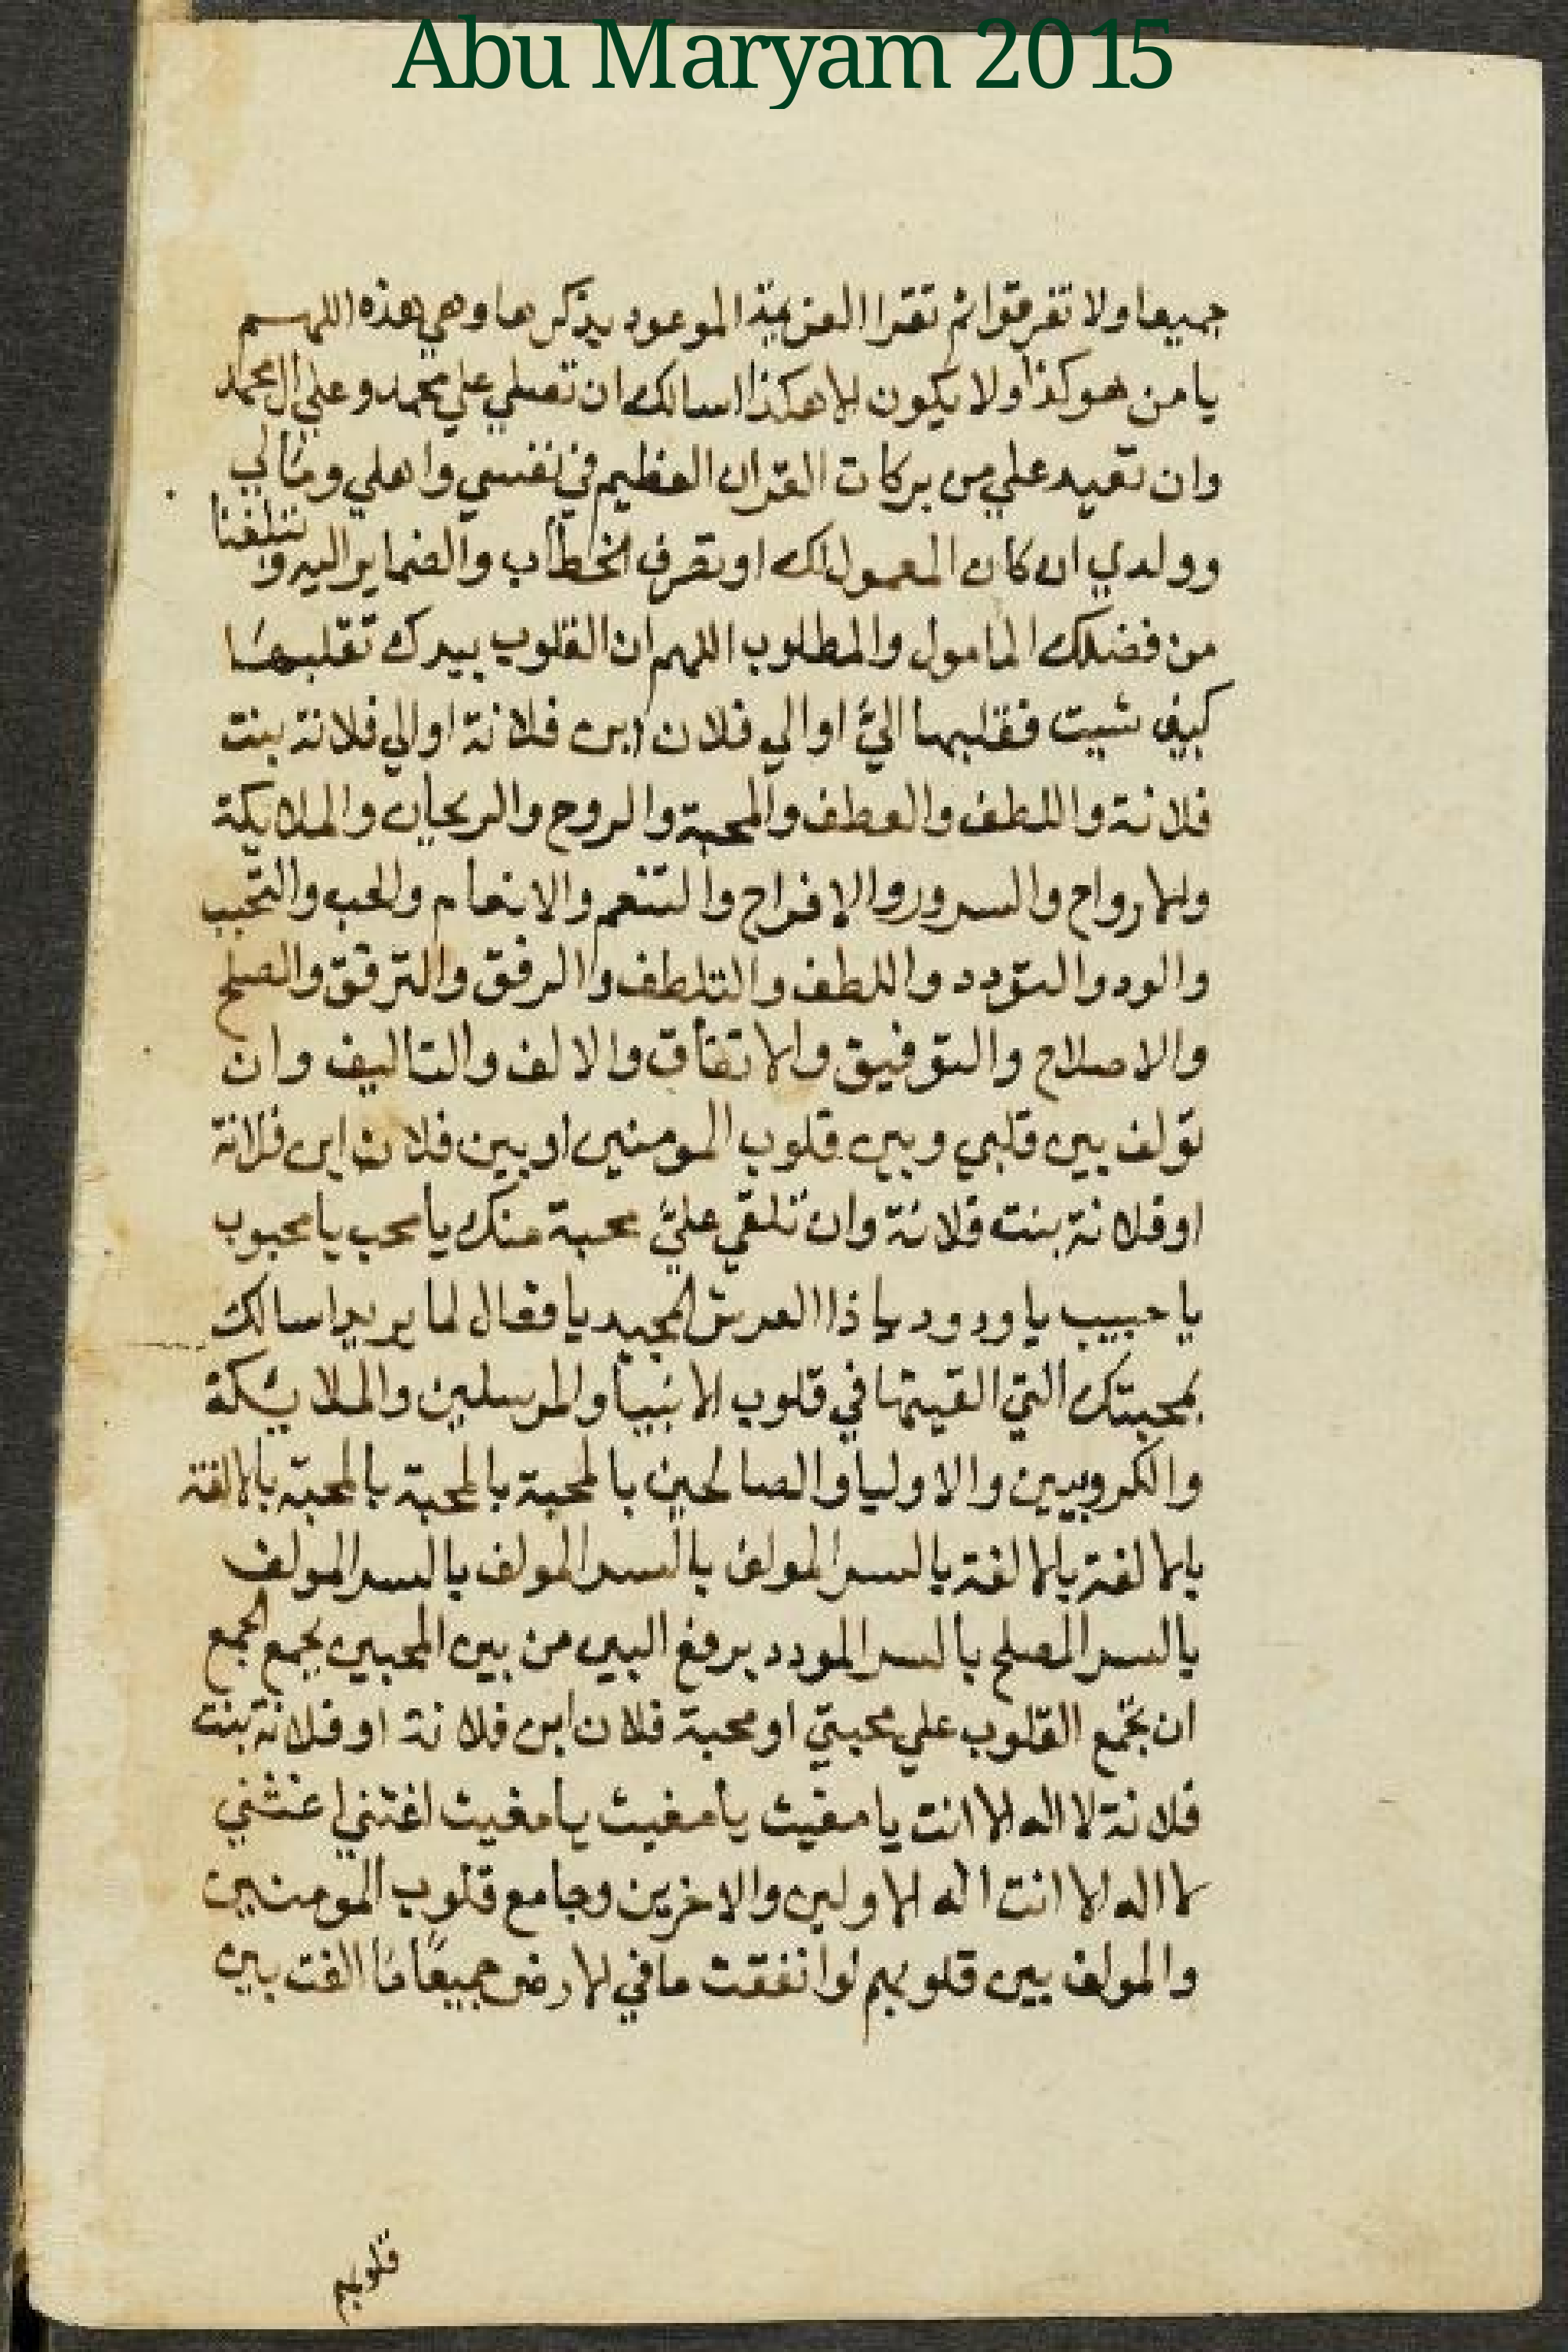 Abu Maryam 2015
جميعا ولا تفرقوا ثم تقرا العزيمة الموعود بذكرها وهي هذه اللهم
يا من هو كذا ولا يكون الا هكذا اسالك ان تصلي علي محمد وعلي ال محمد
وان تعيد علي من بركات القران العظيم في نفسي واهلي ومالي
وولدي ان كان المعمول لك او تصرف الخطاب والضماير اليه و
من فضلك المامول والمطلوب اللهم ان القلوب بيدك تقلبها
كيف شيت فقلبها اليَّ او الي فلان ابن فلانة او الي فلانة بنت
فلانة واللطف والعطف والمحبة والروح والريحان والملايكة
والارواح والسرور والافراح والتنعم والانعام والحب والتحبب
والود والتودد واللطف والتلطف والرفق والترفق والصلح
والاصلاح والتوفيق والاتفاق والالف والتاليف وان
تولف بين قلبي وبين قلوب المومنين او بين فلان ابن فلانة
او فلانة بنت فلانة وان تلقي عليَّ محبة منك يا محب يا محبوب
يا حبيب يا ودود يا ذا العرش المجيد يا فعال لما يريد اسالك
بمحبتك التي القيتها في قلوب الانبيا والمرسلين والملائكة
والكروبيين والاوليا والصالحين بالمحبة بالمحبة بالمحبة بالالفة
بالالفة بالالفة بالسر المولف بالسر المولف بالسر المولف
بالسر المصلح بالسر المودد برفع البين من بين المحبين بجمع الجمع
ان تجمع القلوب علي محبتي او محبة فلان ابن فلانة او فلانة بنت
فلانة لا اله الا انت يا مغيث يا مغيث يا مغيث اغثني اغثني
لا اله الا انت اله الاولين والاخرين وجامع قلوب المومنين
والمولف بين قلوبهم لو انفقت ما في الارض جميعا ما الفت بين
قلوبهم